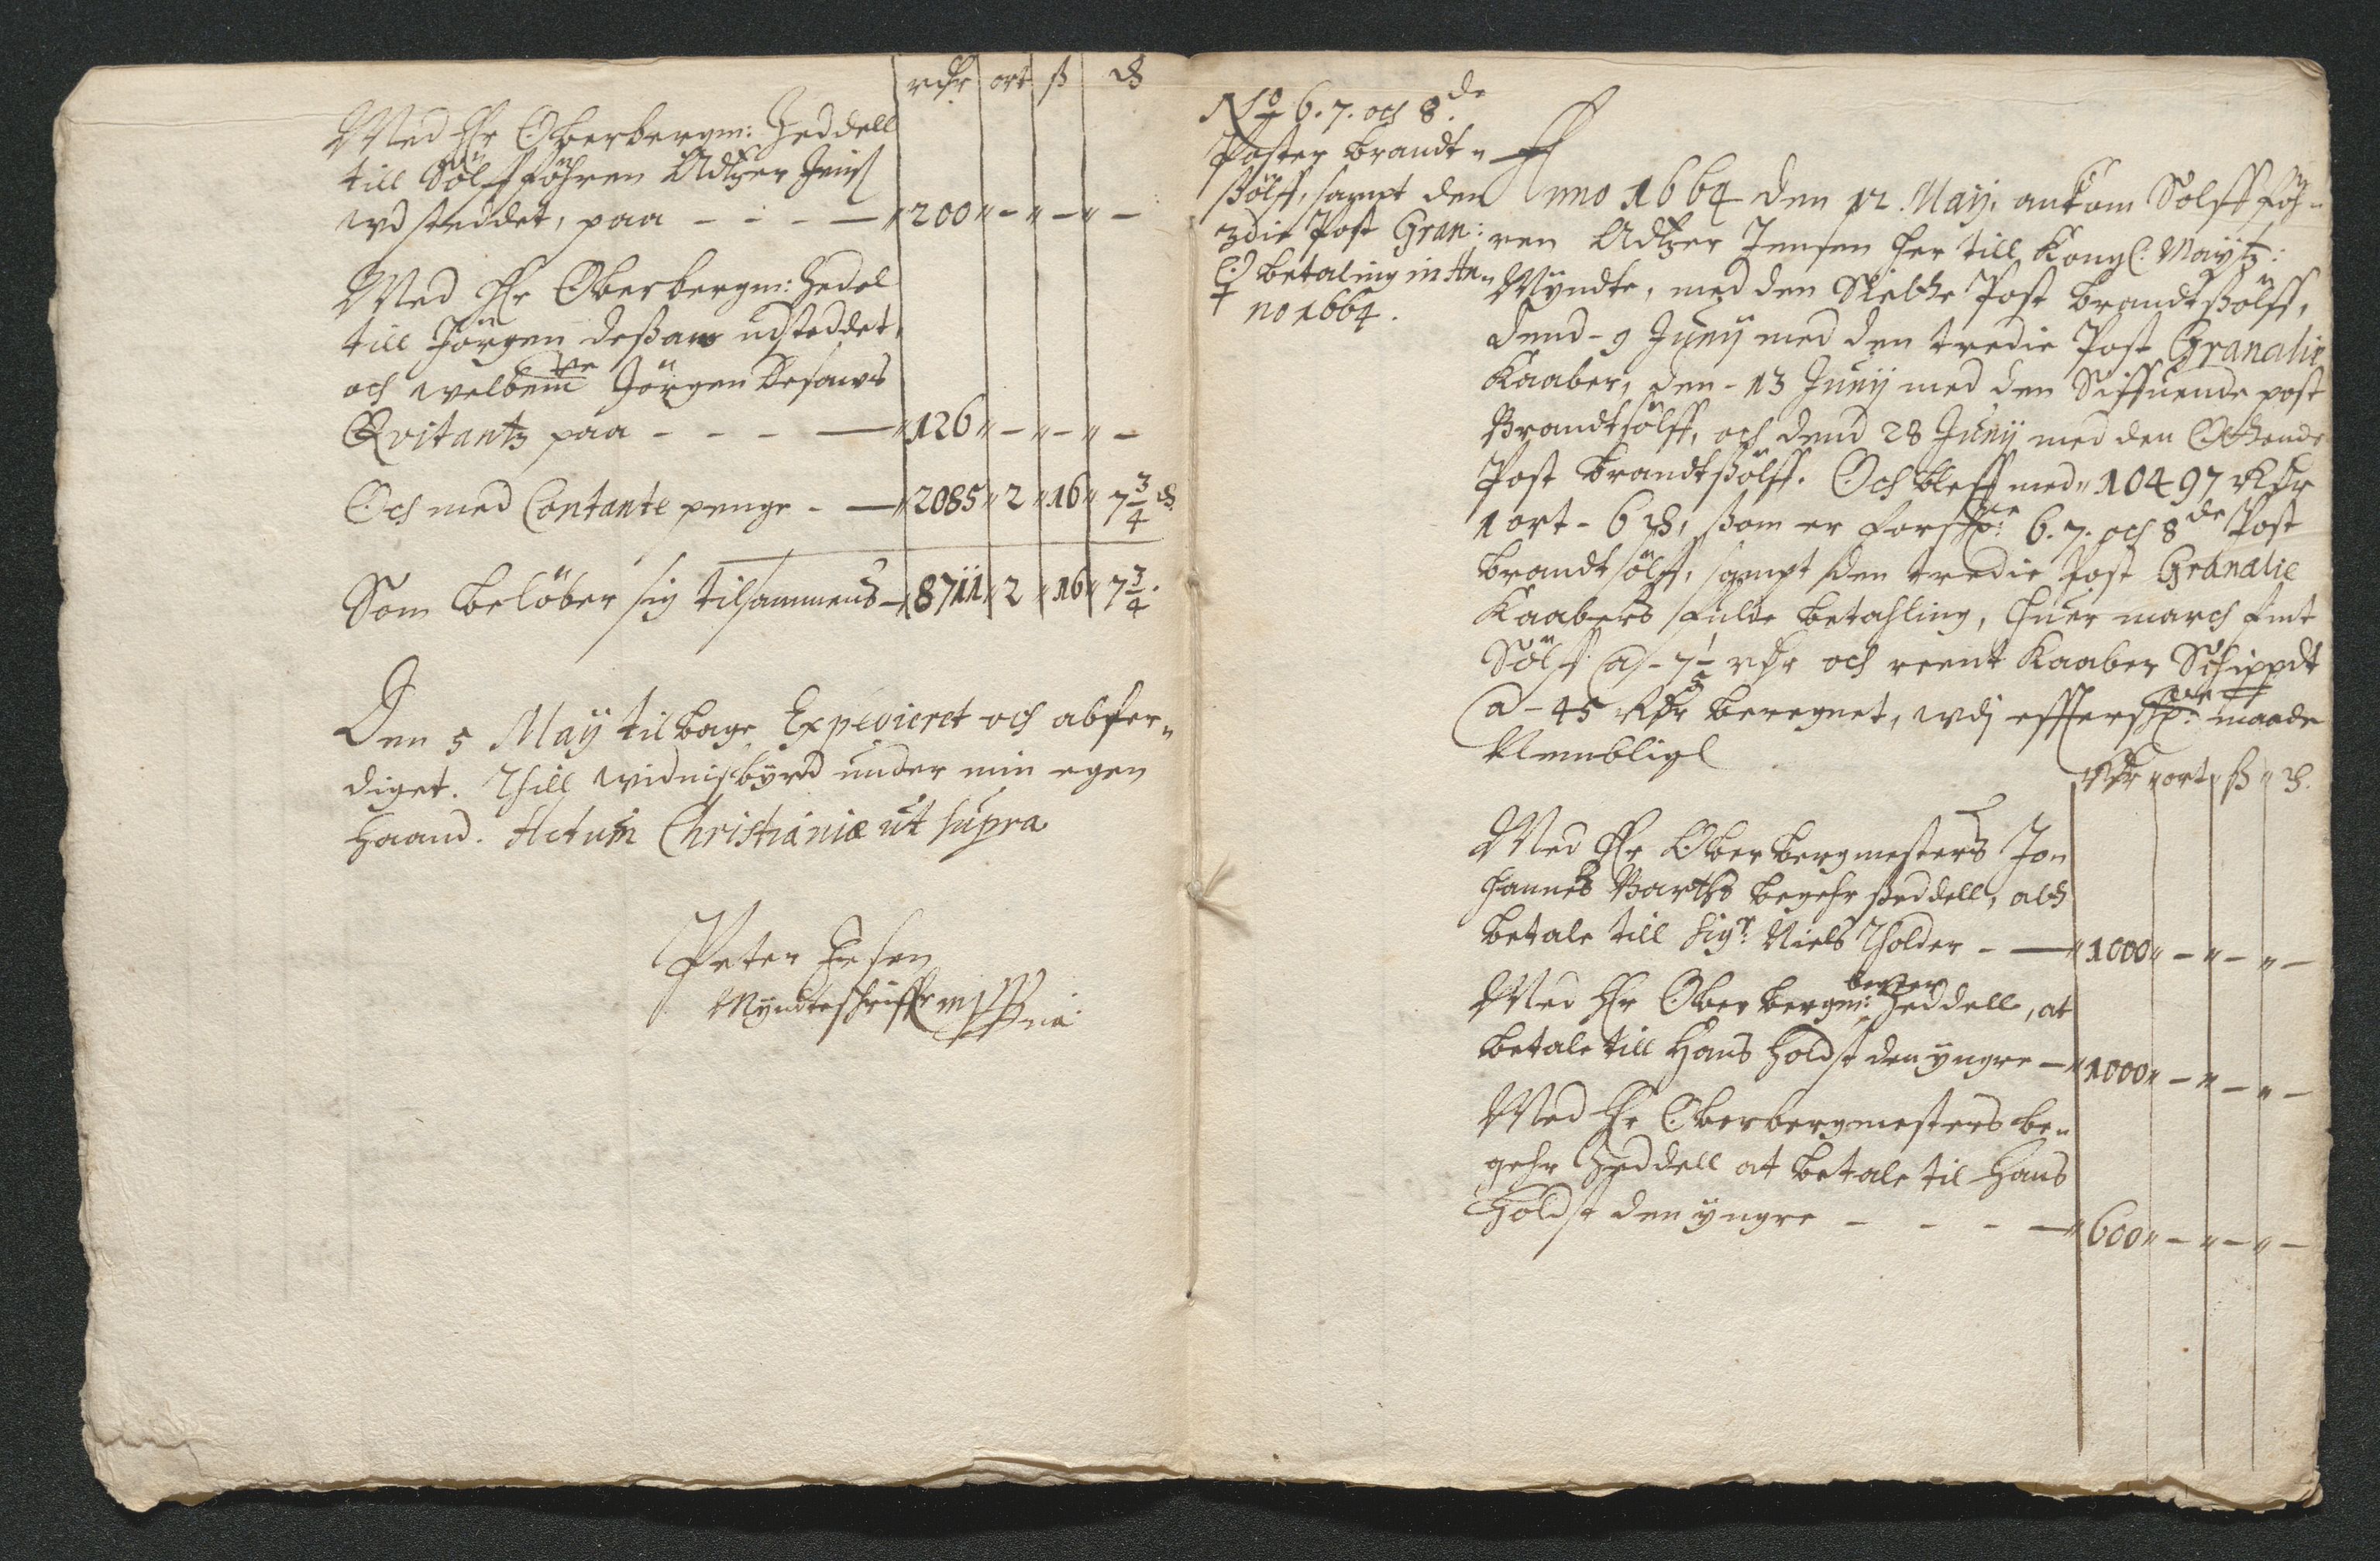 rdr ort ß ₰
Med Hr Oberbergm: Zeddell
till Sölffföhren Adtzer Jens:
wdsteddet, paa - - - — " 200 " - " - " -
Med Hr Oberbergm: Zedel
till Jörgen Deßaws udsteddet,
och welbemte Jörgen Desaws
Qvitantz paa - - - — " 126 " - " - " -
Och med Contante penge - — " 2085 " 2 " 16 " 7 3/4 ₰
Som belöber sig tilsammens — " 8711 " 2 " 16 " 7 3/4.
Den 5 Maÿ tilbage Expedieret och abfer„
diget. Thill widnisbÿrd under min egen
Haand. Actum Christianiæ ut supra
Peter
Mÿndteschriffr mppria
No 6. 7. och 8de
Poster brandt„
ßölff, sampt den
3die Post Gran:
betaling in An„
no 1664.
Anno 1664 den 12. Maÿ, ankom Sölffföh„
ren Adtzer Jensen her till Kongl: Maÿtz:
Mÿndte, med den Siette Post brandtßölff,
dend - 9 Junÿ med den tredie Post Granalie
Kaaber, den - 13 Junÿ med den Siffuende post
Brandtsölff, och dend 28 Junÿ med den Ottende
Post brandtßölff. Och bleff med " 10497 Rdr
1 ort - 6 ß, som er forschne: 6. 7. och 8de Post
brandtsölff, sampt den tredie Post Granalie
Kaabers fulde betahling, huer march fint
Sölf @ - 7 1/5 rdr och reent Kaaber Schippdt
@ - 45 Rdr beregnet, wdj effterschne: maade
Nembligl
Rdr " ort " ß " ₰.
Med Hr Oberbergmesters Jo„
hannes Barths begehr ßeddell, at
betale till Sigr: Niels Tholder - — " 1000 " - " - " -
Med Hr Oberbergm: begier Zeddell, at
betale till Hans Holdst den ÿngre — " 1000 " - " - " -
Med Hr Oberbergmesters be„
gehr Zeddell at betale til Hans
Holdst den ÿngre - - - — " 600 " - " - " -